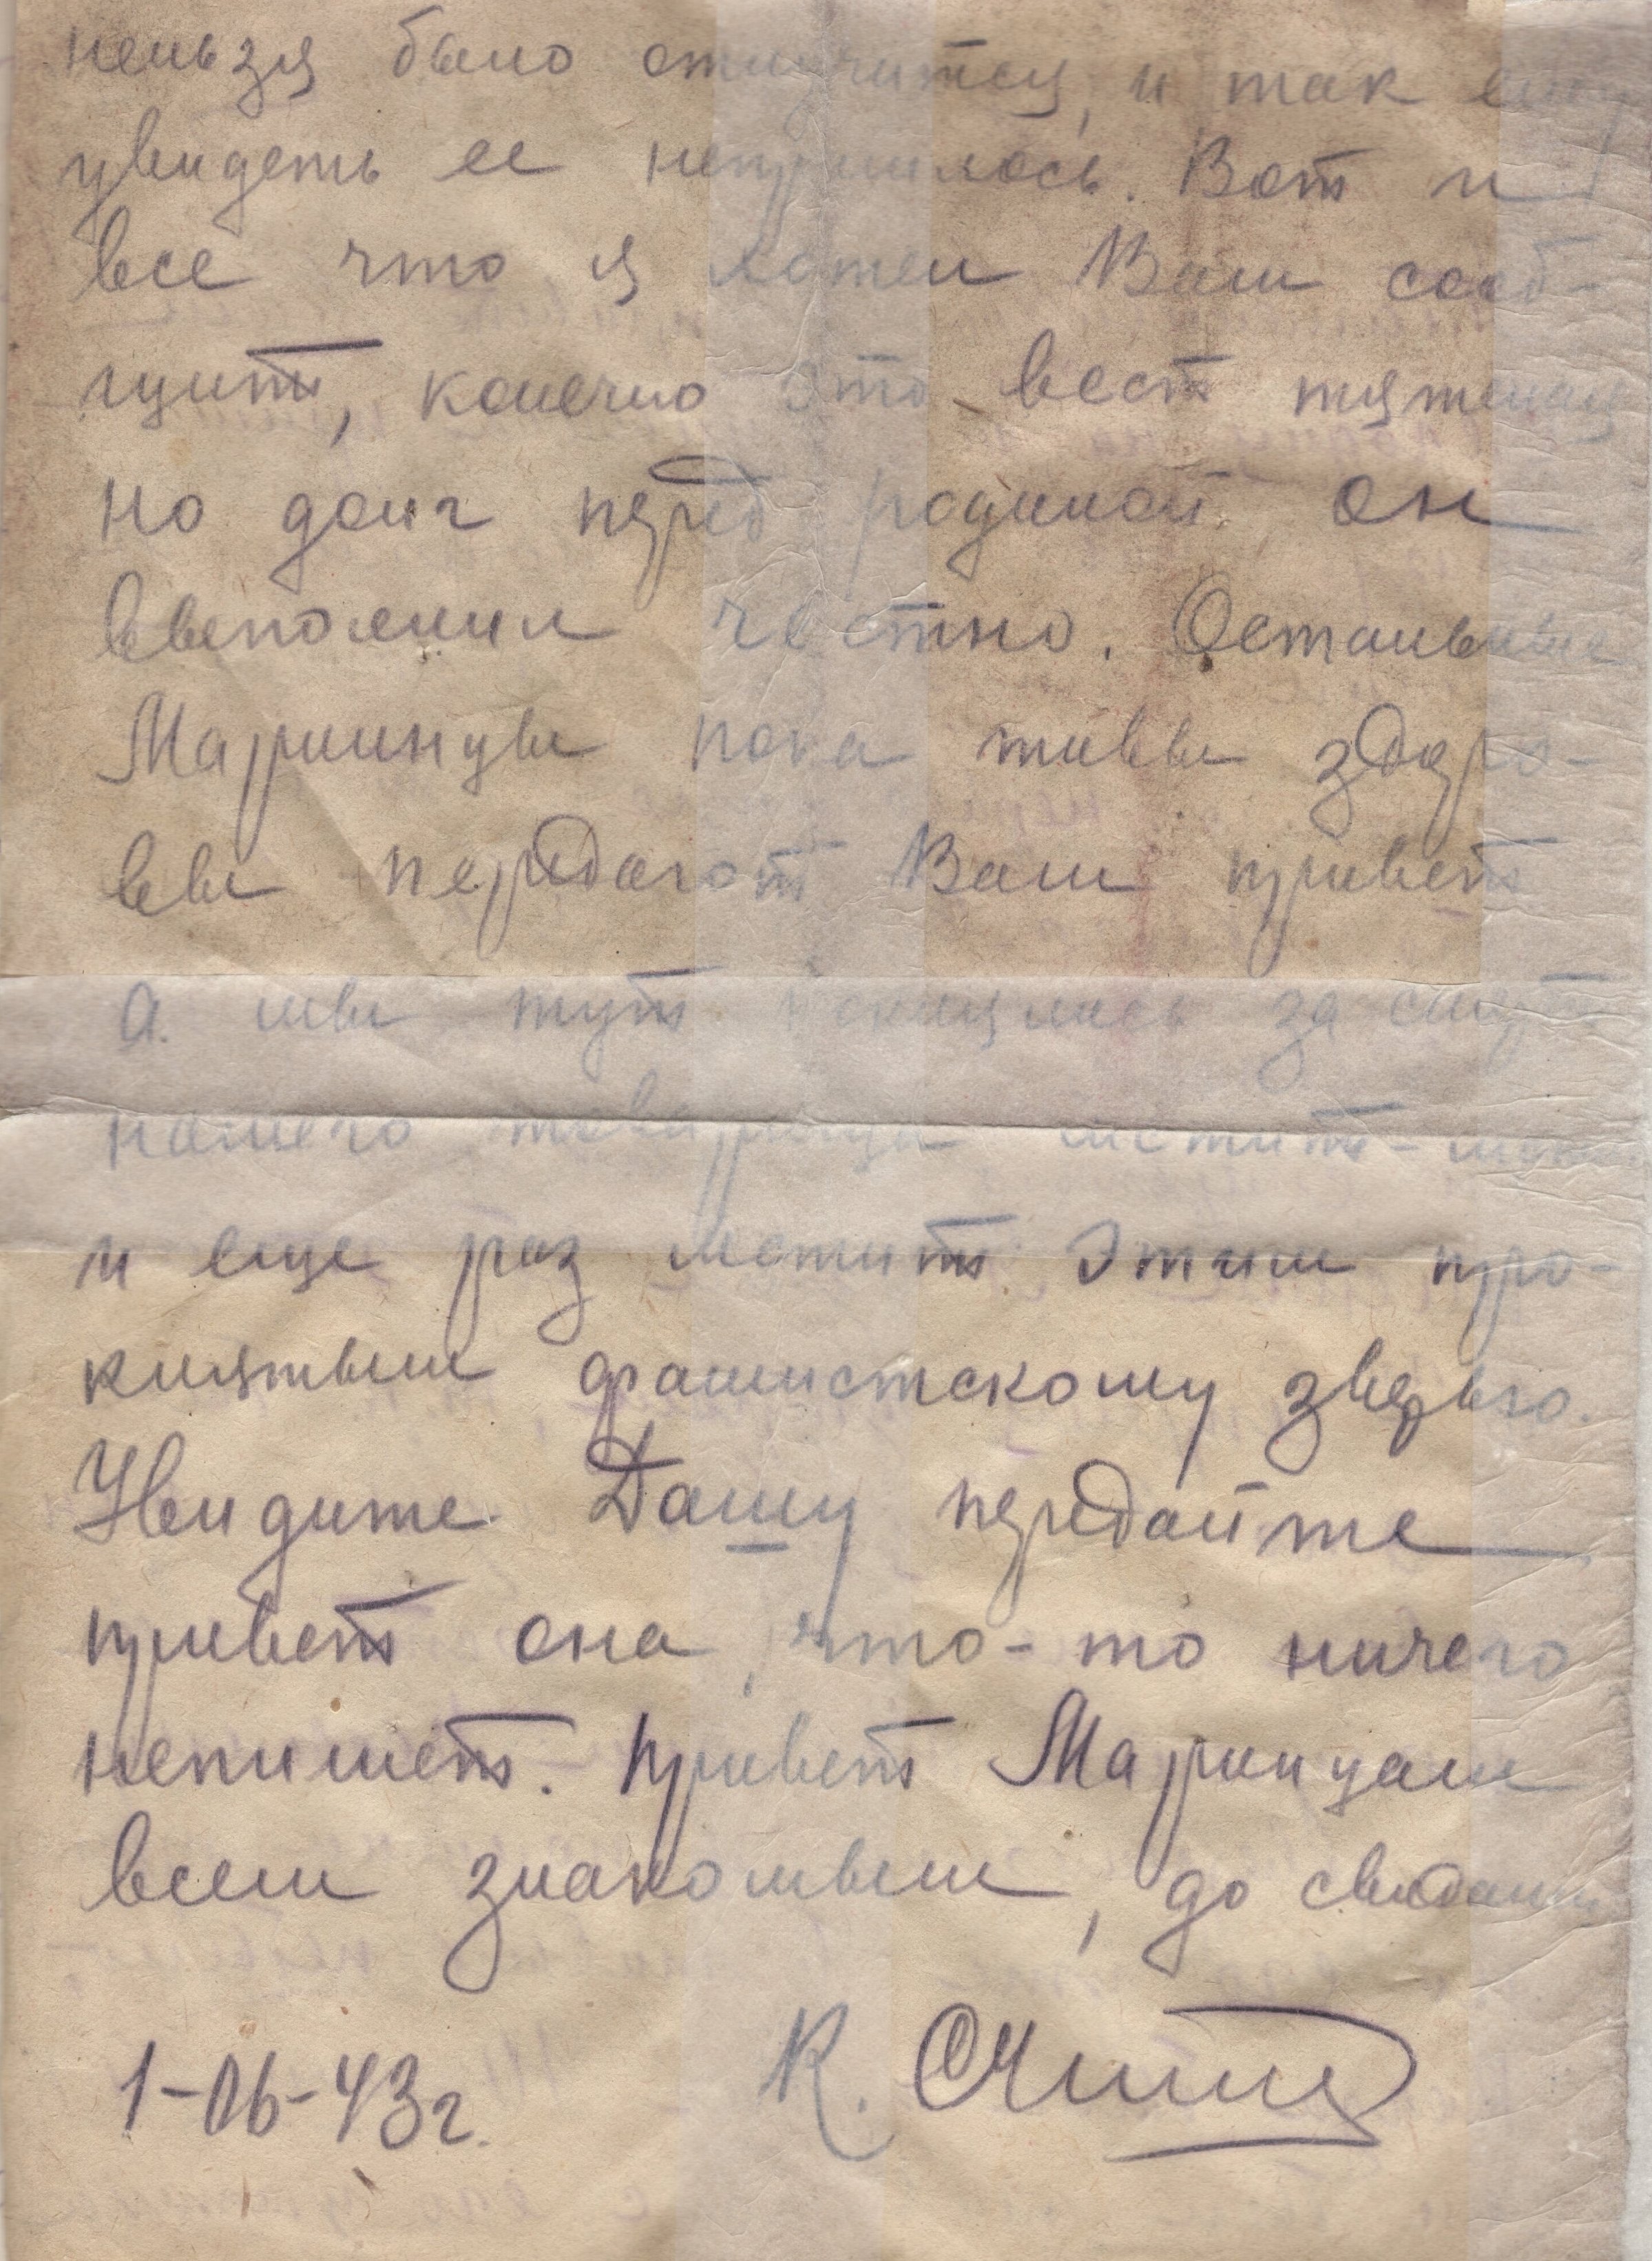 нельзя было отлучится, и так ему
увидеть ее непришлось. Вот и
все что я хотел Вам сооб-
щить, конечно это весть тяжелая
но долг перед родиной он
выполнил честно. Остальные
Маринцы пока живы здоро-
вы передают Вам привет
а мы тут поклялись за смерть
нашего товарища мстить -
и еще раз мстить этим про-
клятым фашистскому зверью.
Увидите Дашу передайте
привет она что-то ничего
непишет. Привет Маринцам
всем знакомым, до свидания
1-06-43г. К.